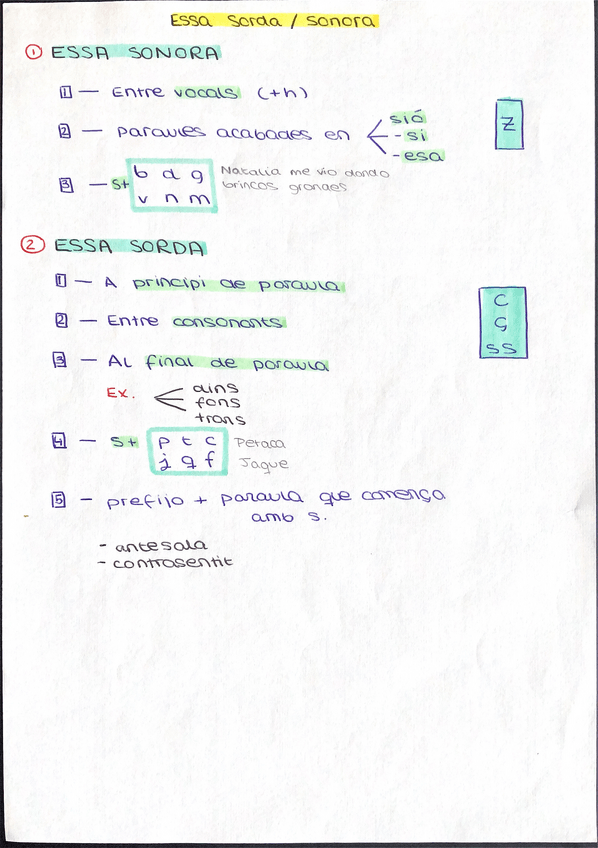 Essa Sorda / sonora
1 ESSA SONORA
1 — Entre vocals (+h)
2 — paraules acabades en
sió
-si
-esa
z
3 — S+
b d g
v n m
Natalia me vio dando
brincos grandes
2 ESSA SORDA
1 — A principi de paraula
2 — Entre consonants
3 — Al final de paraula
C
Ç
SS
Ex.
dins
fons
trans
4 — S+
p t c
j q f
Petaca
Jaque
5 - prefijo + paraula que comença
amb s.
- antesala
- contrasentit